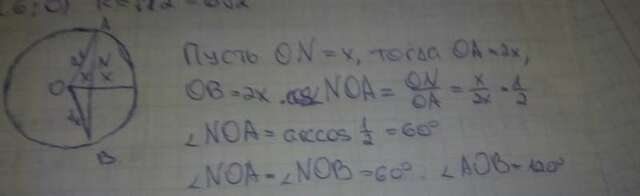 A
N
2x
x x
O
2x
B
Пусть ON = x, тогда OA = 2x,
OB = 2x . cos∠NOA = ON/OA = x/2x = 1/2
∠NOA = arccos 1/2 = 60°
∠NOA = ∠NOB = 60° . ∠AOB = 120°